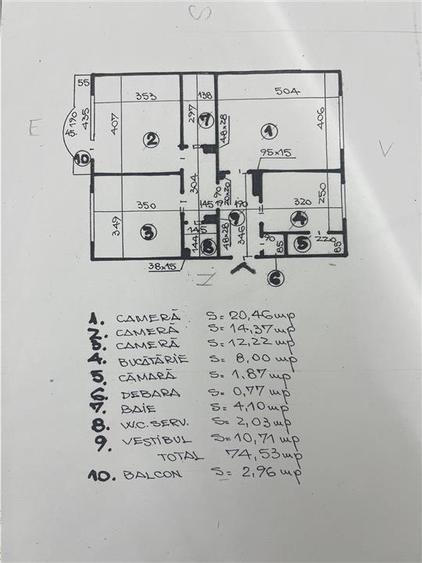 S
55
353
138
504
435
190
407
297
48x28
406
E
2
7
1
10
95x15
V
304
90
20x20
350
145
170
320
250
349
3
9
4
346
48x28
90
220
144
8
85
5
85
38x15
N
6
1. CAMERĂ S= 20,46 mp
2. CAMERĂ S= 14,37 mp
3. CAMERĂ S= 12,22 mp
4. BUCĂTĂRIE S= 8,00 mp
5. CĂMARĂ S= 1,87 mp
6. DEBARA S= 0,77 mp
7. BAIE S= 4,10 mp
8. W.C. SERV. S= 2,03 mp
9. VESTIBUL S= 10,71 mp
TOTAL 74,53 mp
10. BALCON S= 2,96 mp